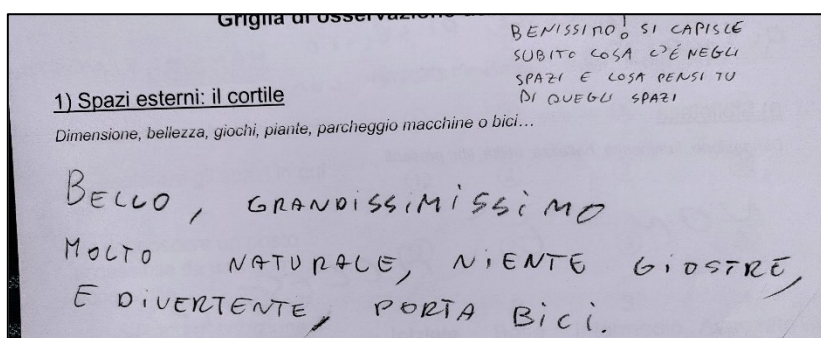 Griglia di osservazione
BENISSIMO! SI CAPISCE
SUBITO COSA C'È NEGLI
SPAZI E COSA PENSI TU
DI QUEGLI SPAZI
1) Spazi esterni: il cortile
Dimensione, bellezza, giochi, piante, parcheggio macchine o bici…
BELLO, GRANDISSIMISSIMO
MOLTO NATURALE, NIENTE GIOSTRE,
E DIVERTENTE, PORTA BICI.